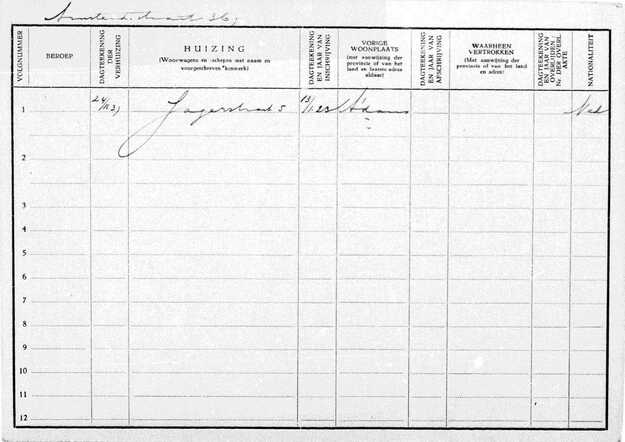 VOLGNUMMER
BEROEP
DAGTEEKENING DER VERHUIZING
HUIZING
(Woonwagens en -schepen met naam en voorgeschreven kenmerk)
DAGTEEKENING EN JAAR VAN INSCHRIJVING
VORIGE WOONPLAATS
(met aanwijzing der provincie of van het land en laatste adres aldaar)
DAGTEEKENING EN JAAR VAN AFSCHRIJVING
WAARHEEN VERTROKKEN
(Met aanwijzing der provincie of van het land en adres)
DAGTEEKENING EN JAAR VAN OVERLIJDEN / Nr DER OVERL. AKTE
NATIONALITEIT
1 Jagerstraat 5 A'dam Ned
2
3
4
5
6
7
8
9
10
11
12